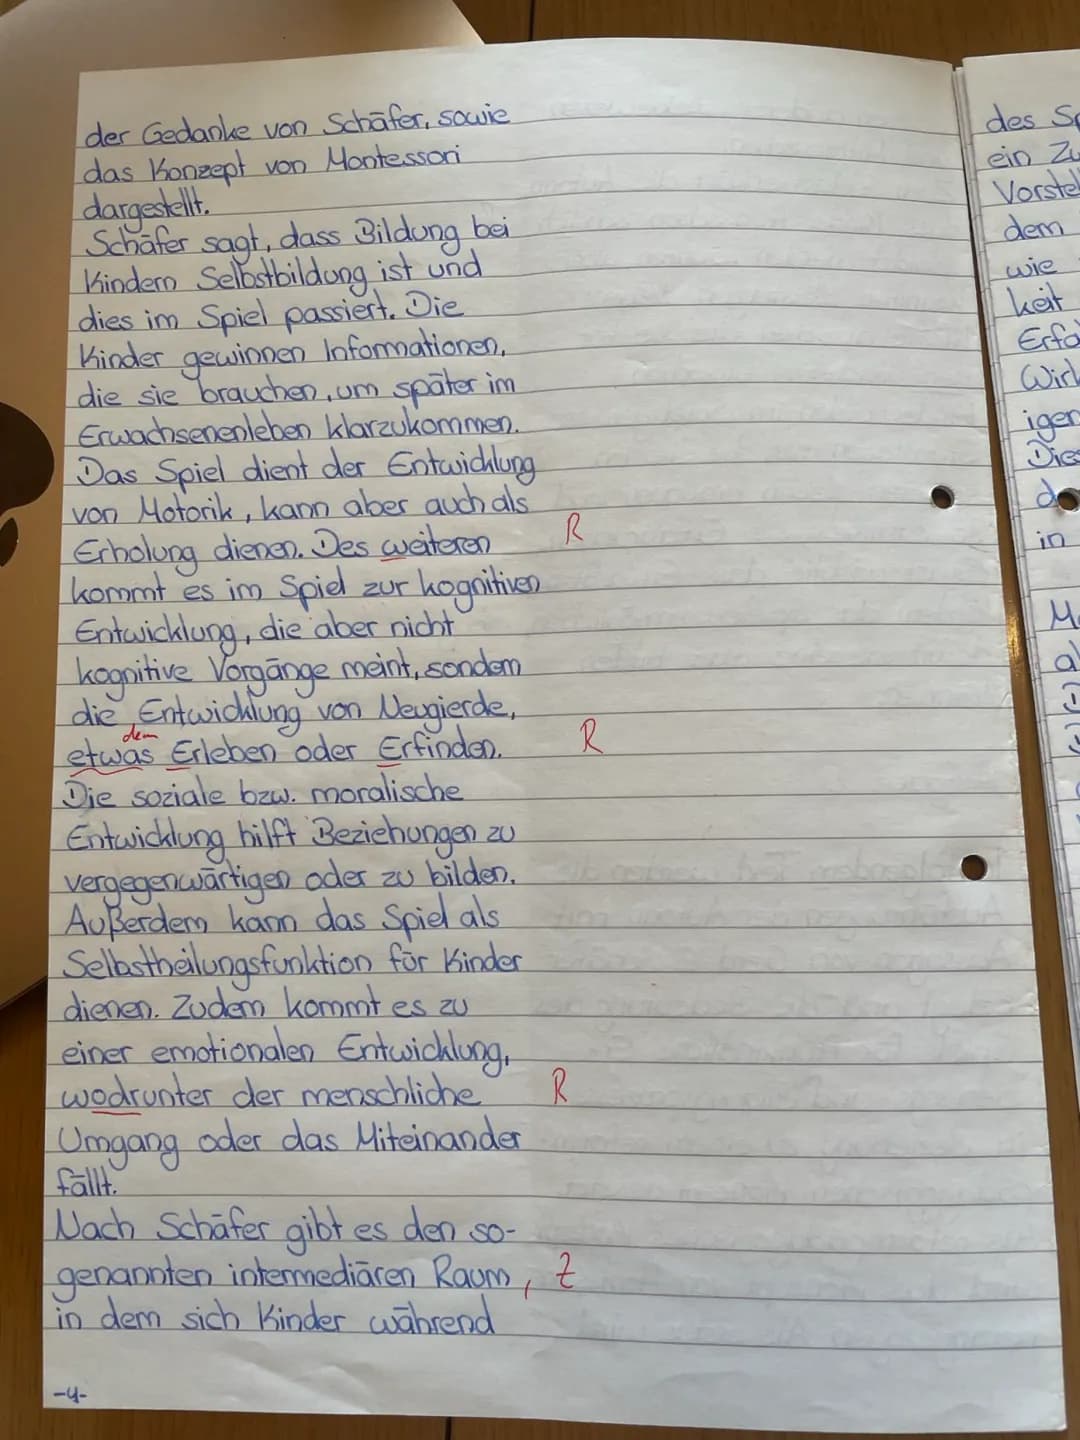 der Gedanke von Schäfer, sowie
das Konzept von Montessori
dargestellt.
Schäfer sagt, dass Bildung bei
Kindern Selbstbildung ist und
dies im Spiel passiert. Die
Kinder gewinnen Informationen,
die sie brauchen, um später im
Erwachsenenleben klarzukommen.
Das Spiel dient der Entwicklung
von Motorik, kann aber auch als
Erholung dienen. Des weiteren R
kommt es im Spiel zur kognitiven
Entwicklung, die aber nicht
kognitive Vorgänge meint, sondern
die Entwicklung von Neugierde,
dem
etwas Erleben oder Erfinden. R
Die soziale bzw. moralische
Entwicklung hilft Beziehungen zu
vergegenwärtigen oder zu bilden.
Außerdem kann das Spiel als
Selbstheilungsfunktion für Kinder
dienen. Zudem kommt es zu
einer emotionalen Entwicklung,
wodrunter der menschliche R
Umgang oder das Miteinander
fällt.
Nach Schäfer gibt es den so-
genannten intermediären Raum, Z
in dem sich Kinder während
-4-
des
ein
dem
wie
keit
igen
in